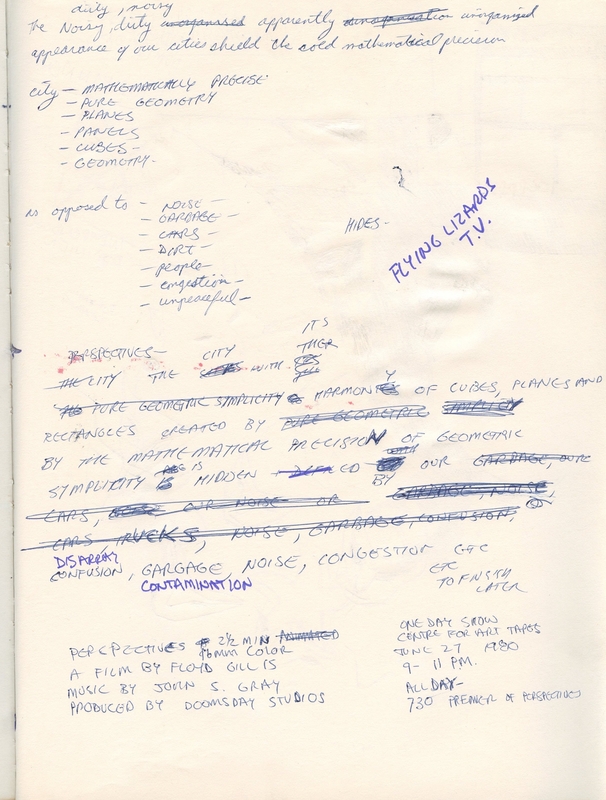 dirty, noisy
the Noisy, dirty unorganised apparently unorganized
appearance of our cities shield the cold mathematical precision
city - MATHEMATICALLY PRECISE
- PURE GEOMETRY
- PLANES
- PANELS
- CUBES -
- GEOMETRY -
as opposed to - NOISE -
- GARBAGE -
- CARS -
- DIRT -
- people -
- congestion -
- unpeaceful -
HIDES -
FLYING LIZARDS
T.V.
ITS
PERSPECTIVES - CITY THER
THE CITY THE WITH
THE PURE GEOMETRIC SIMPLICITY HARMONY OF CUBES, PLANES AND
RECTANGLES CREATED BY PURE GEOMETRIC SIMPLICITY
BY THE MATHEMATICAL PRECISION OF GEOMETRIC
SIMPLICITY IS HIDDEN BY OUR GARBAGE, OUR
CARS, OUR NOISE OR GARBAGE, NOISE,
CARS TRUCKS, NOISE, GARBAGE, CONFUSION,
DISARRAY
CONFUSION, GARGAGE, NOISE, CONGESTION ETC
CONTAMINATION
ETC
TO FINISH
LATER
PERSPECTIVES 2½ MIN ANIMATED
16mm COLOR
A FILM BY FLOYD GILLIS
MUSIC BY JOHN S. GRAY
PRODUCED BY DOOMSDAY STUDIOS
ONE DAY SHOW
CENTRE FOR ART TAPES
JUNE 27 1980
9 - 11 PM.
ALL DAY -
730 PREMIER OF PERSPECTIVES